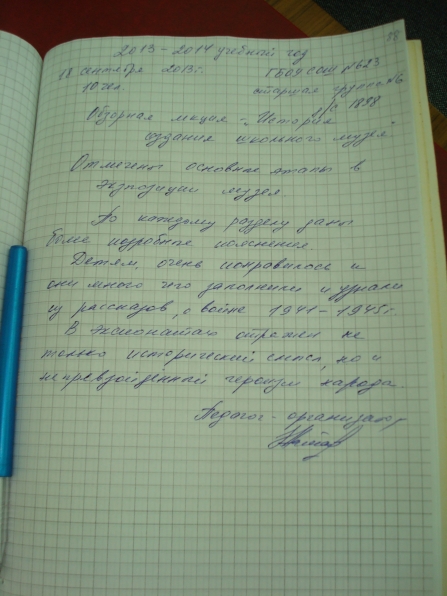 98
2013-2014 учебный год
18 сентября 2013г. ГБОУ СОШ №623
10 чел. старшая группа №6
д/с 1898
Обзорная лекция - "История
создания школьного музея."
Отмечены основные этапы в
экспозиции музея
По каждому разделу даны
более подробные пояснения
Детям, очень понравилось и
они много чего запомнили и узнали
из рассказов, о войне 1941-1945г
В экспонатах отражен не
только исторический смысл, но и
непревзойденный героизм народа.
Педагог-организатор